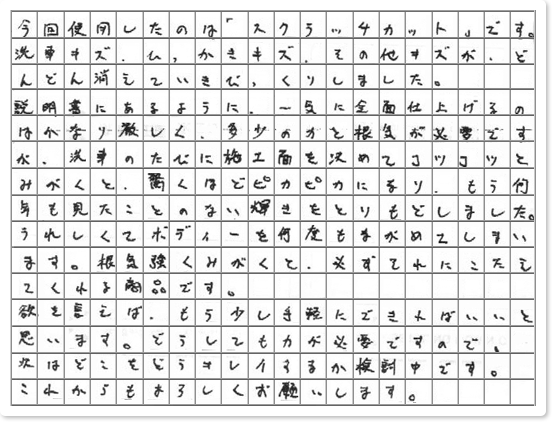 今回使用したのは「スクラッチカット」です。
洗車キズ、ひっかきキズ、その他キズが、ど
んどん消えていきびっくりしました。
説明書にあるように、一気に全面仕上げるの
はかなり厳しく、多少の力と根気が必要です
が、洗車のたびに施工面を決めてコツコツと
みがくと、驚くほどピカピカになり、もう何
年も見たことのない輝きをとりもどしました。
うれしくてボディーを何度もながめてしまい
ます。根気強くみがくと、必ずそれにこたえ
てくれる商品です。
欲を言えば、もう少し手軽にできればいいと
思います。どうしても力が必要ですので。
次はどこをどうキレイするか検討中です。
これからもよろしくお願いします。